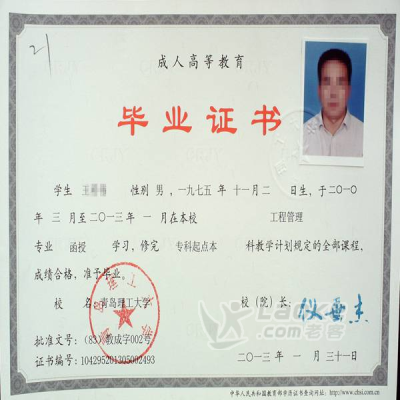 21
成人高等教育
毕业证书
学生 性别 男，一九七五年 十一月二 日生，于二〇一〇
年 三 月至二〇一三年 一 月在本校 工程管理
专业 函授 学习，修完 专科起点本 科教学计划规定的全部课程，
成绩合格，准予毕业。
校 名：青岛理工大学 校（院）长：
批准文号：（83）教成字002号
证书编号：104295201305002493 二〇一三年 一 月三十一日
中华人民共和国教育部学历证书查询网址：http://www.chsi.com.cn